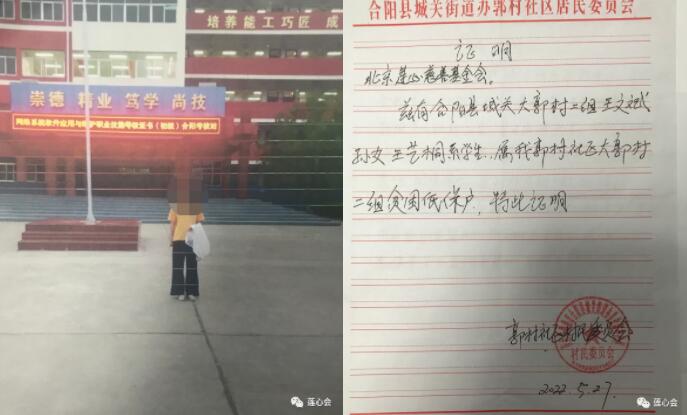 培养能工巧匠 成
崇德 精业 笃学 尚技
网络系统软件应用与维护职业技能等级证书（初级）合阳考核站
莲心会
合阳县城关街道办郭村社区居民委员会
证明
北京莲心慈善基金会。
兹有合阳县城关大郭村二组王文斌
孙女王艺桐系学生，属我郭村社区大郭村
二组贫困低保户，特此证明
郭村社区村民委员会
村民委员会
2022.5.27.
莲心会